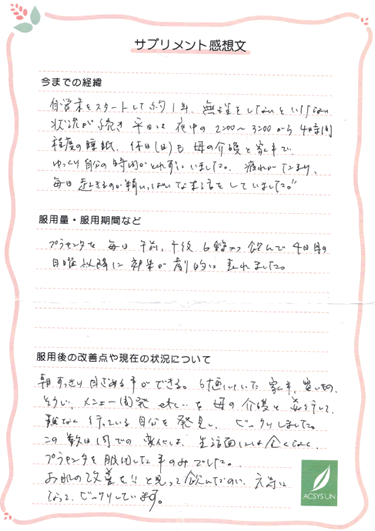 サプリメント感想文
今までの経緯
自営業をスタートして約1年、無理をしないといけない
状況が続き平日は夜中の2:00〜3:00から4時間
程度の睡眠、休日(日)も母の介護と家事で、
ゆっくり自分の時間がとれずにいました。疲れがたまり、
毎日起きるのが精いっぱいな生活をしていました。
服用量・服用期間など
プラセンタを毎日午前、午後6錠ずつ飲んで4日目の
日曜以降に効果が劇的に表れました。
服用後の改善点や現在の状況について
朝すっきり目ざめる事ができる。
そうじ、メニュー開発etc…を母の介護と
難なく行っている自分を発見し、ビックリしました。
この数日間での変化は、生活面では全くなく、
プラセンタを服用した事のみでした。
お肌の改善を!!と思って飲んだのに、元気に
なって、ビックリしています。
ACSYS UN